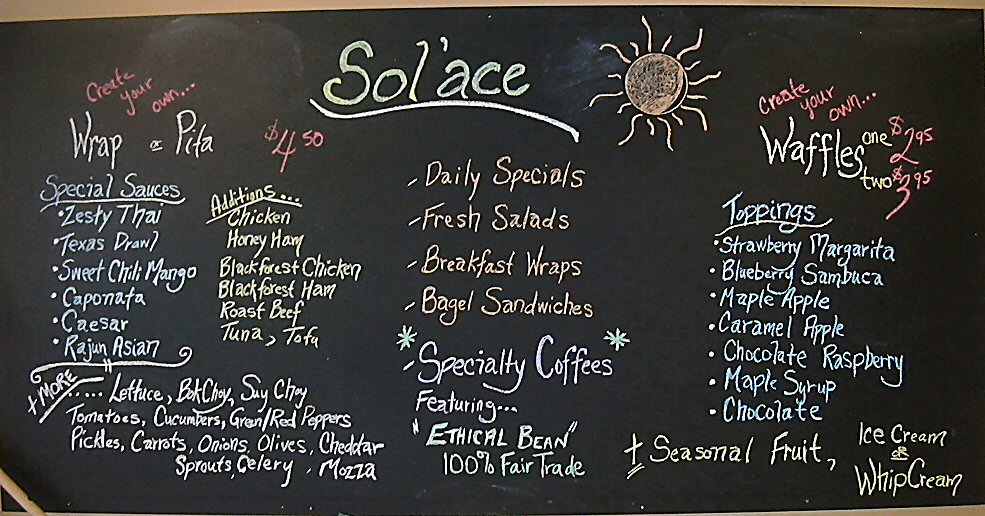 Sol'ace
Create your own...
Wrap or Pita $4.50
Special Sauces
• Zesty Thai
• Texas Drawl
• Sweet Chili Mango
• Caponata
• Caesar
• Rajun Asian
Additions...
Chicken
Honey Ham
Blackforest Chicken
Blackforest Ham
Roast Beef
Tuna, Tofu
+ MORE..... Lettuce, BokChoy, Suy Choy
Tomatoes, Cucumbers, Green/Red Peppers
Pickles, Carrots, Onions, Olives, Cheddar
Sprouts, Celery, Mozza
Daily Specials
Fresh Salads
Breakfast Wraps
Bagel Sandwiches
* Specialty Coffees *
Featuring...
"ETHICAL BEAN"
100% Fair Trade
Create your own...
Waffles one $2.95
two $3.95
Toppings
• Strawberry Margarita
• Blueberry Sambuca
• Maple Apple
• Caramel Apple
• Chocolate Raspberry
• Maple Syrup
• Chocolate
+ Seasonal Fruit, Ice Cream
OR
WhipCream